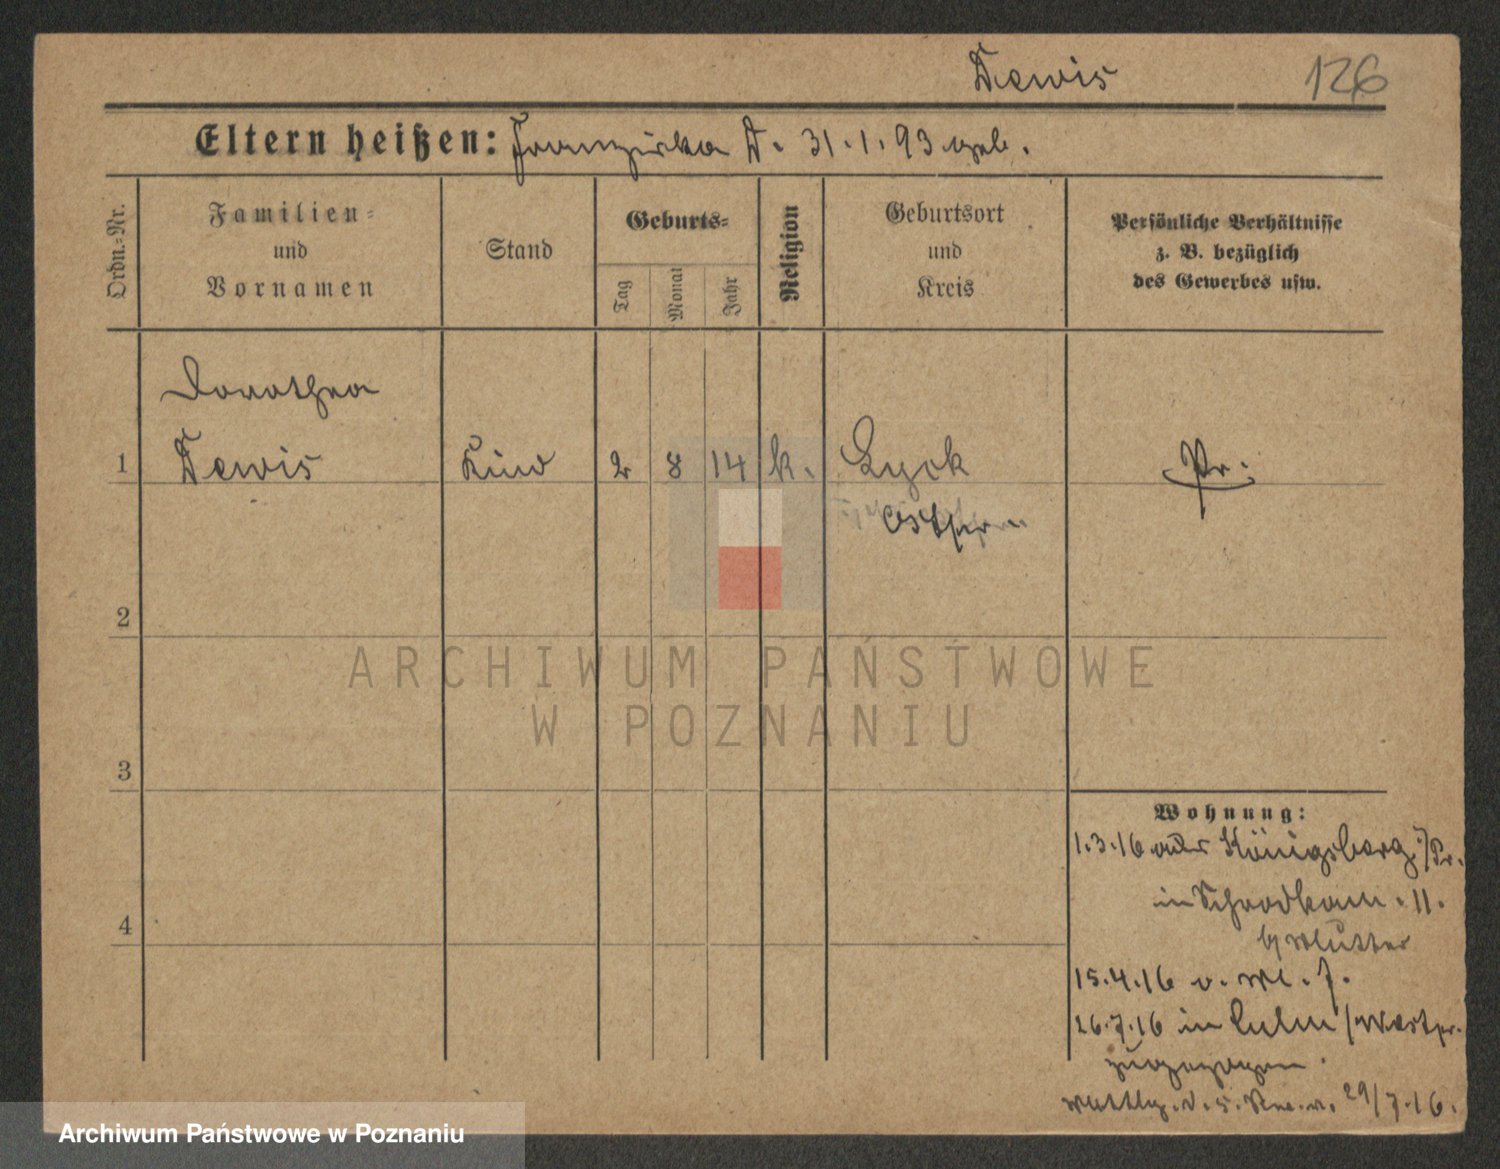 Dewis 126
Eltern heißen: Franziska D. 31.1.93 geb.
Ordn.=Nr.
Familien=
und
Vornamen
Stand
Geburts=
Tag
Monat
Jahr
Religion
Geburtsort
und
Kreis
Persönliche Verhältnisse
z. B. bezüglich
des Gewerbes usw.
Dorothea
1 Dewis Kind 2 8 14 k. Lyck Pr.
Ostpr.
2
ARCHIWUM PAŃSTWOWE
W POZNANIU
3
Wohnung:
1.3.16 aus Königsberg i/Pr.
in 11.
4
b/ Mutter
15.4.16 v. M. F.
26.7.16 in Culm /Westpr.
zugezogen.
29/7.16.
Archiwum Państwowe w Poznaniu